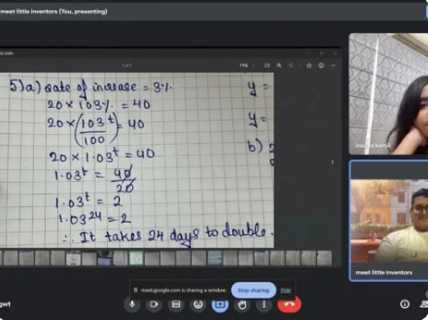 meet little inventors (You, presenting)
5) a) rate of increase = 3%
20 × 103% = 40
20 × (103/100)^t = 40
20 × 1.03^t = 40
1.03^t = 40/20
1.03^t = 2
1.03^24 = 2
∴ It takes 24 days to double.
y =
y =
b)
meet little inventors
meet.google.com is sharing a window.
Stop sharing
Hide